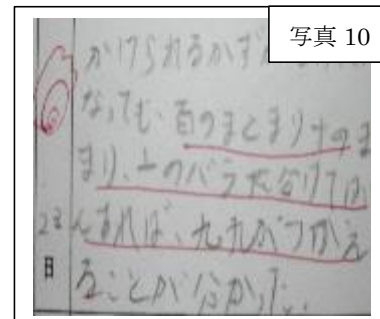 写真 10
かけられるかず
なっても、百のまとまり十のま
まり、一のバラに分けてけい
んすれば、九九がつかえ
ることが分かった。
日